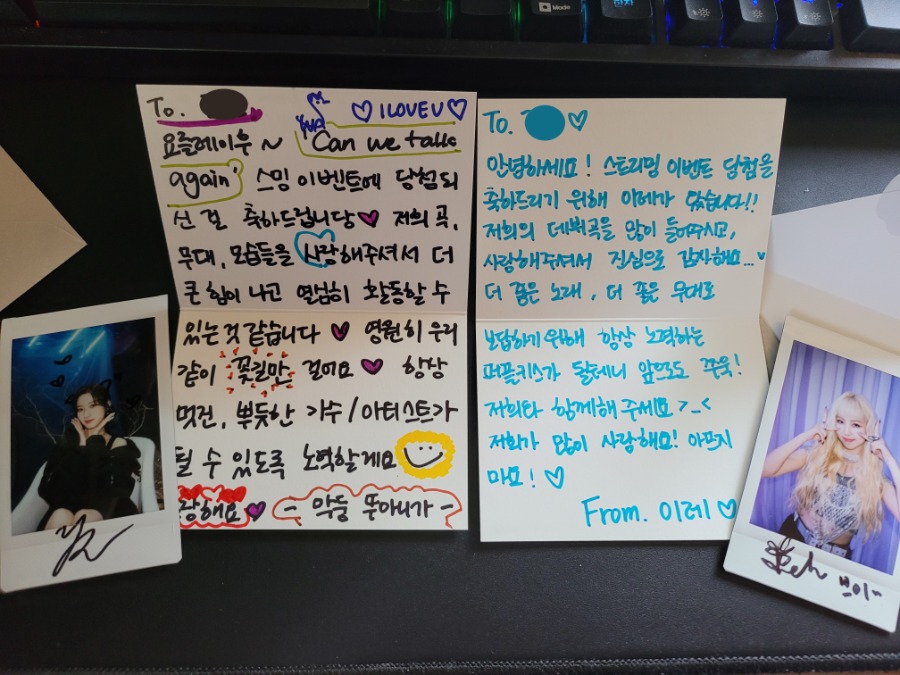 Mode
To.
I LOVE U
요즐레이우 ~ 'Can we talk
again' 스밍 이벤트에 당첨되
신 걸 축하드립니당 저희 곡,
무대, 모습들을 사랑해주셔서 더
큰 힘이 나고 열심히 활동할 수
있는 것 같습니다 영원히 우리
같이 꽃길만 걸어요 항상
멋진, 뿌듯한 가수/아티스트가
될 수 있도록 노력할게요
랑해요 - 막둥 뚜아니가 -
To.
안녕하세요! 스트리밍 이벤트 당첨을
축하드리기 위해 이레가 왔습니다!!
저희의 데뷔곡을 많이 들어주시고,
사랑해주셔서 진심으로 감사해요...
더 좋은 노래, 더 좋은 무대로
보답하기 위해 항상 노력하는
퍼플키스가 될테니 앞으로도 쭈욱!
저희와 함께해 주세요 >_<
저희가 많이 사랑해요! 아프지
마요!
From. 이레
쁘이~